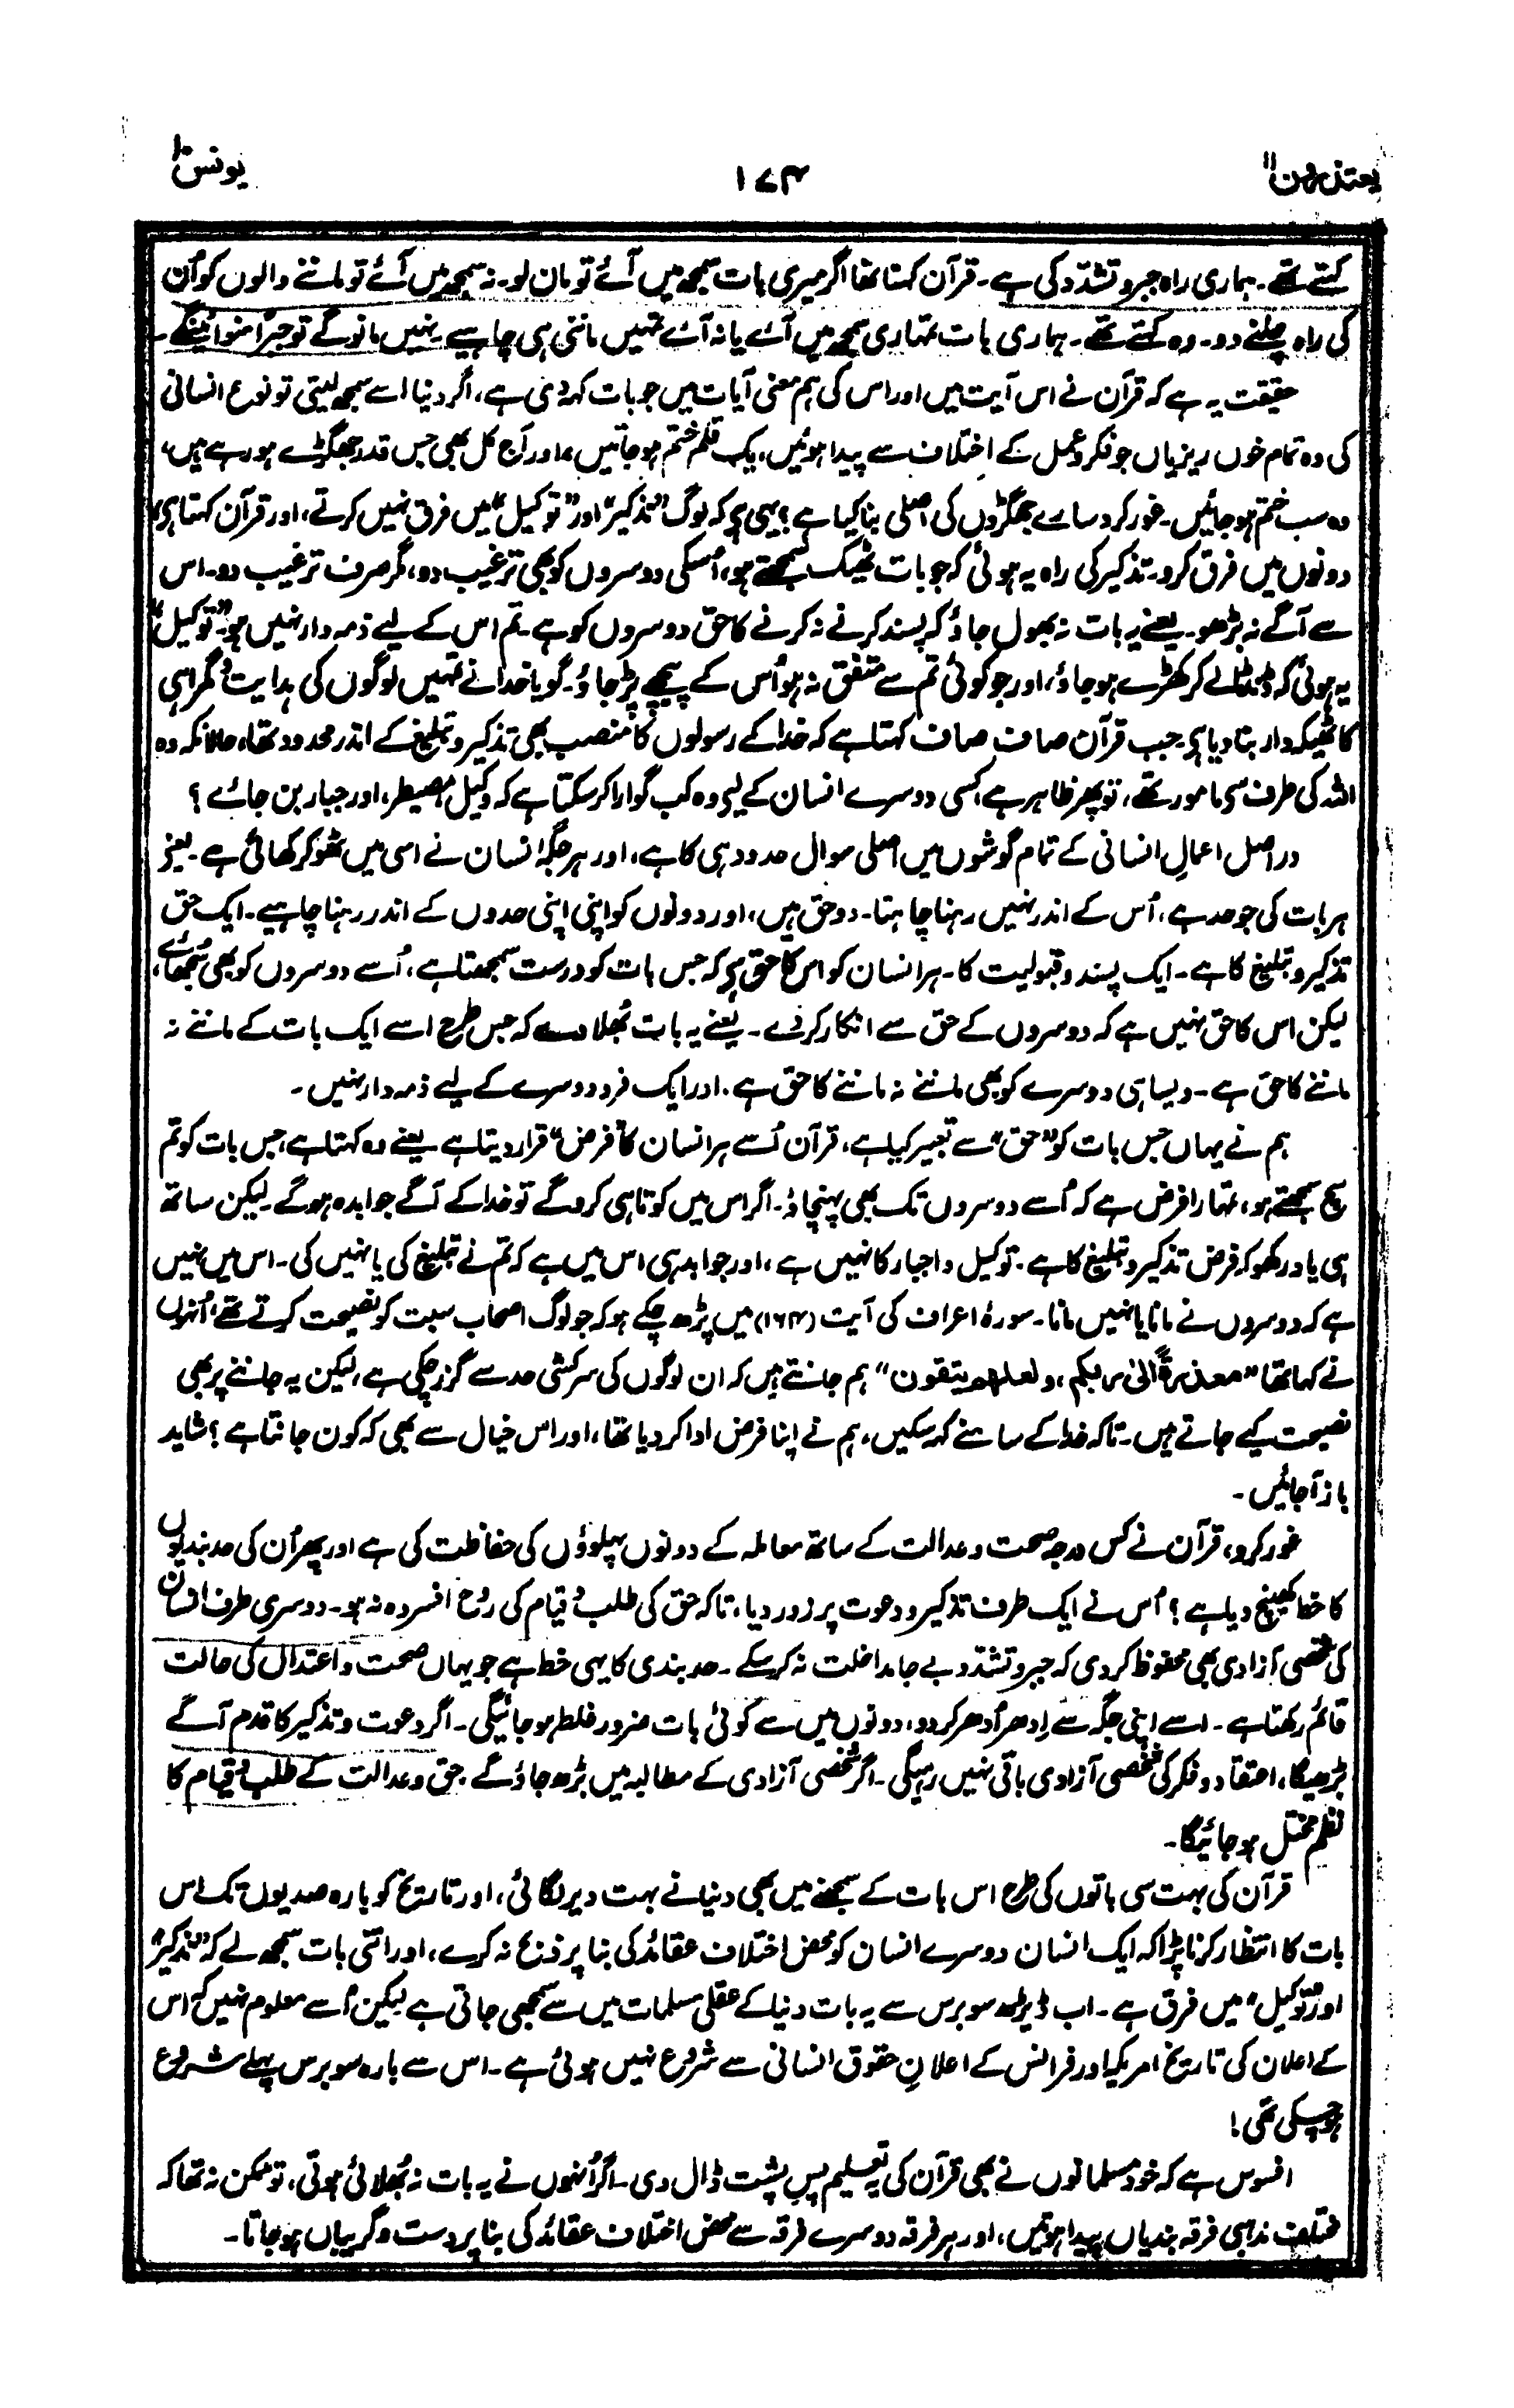 یعتذرون ۱۱
۱۷۴
یونس ۱۰
کہتے تھے۔ ہماری راہ جبر و تشدّد کی ہے۔ قرآن کہتا تھا اگر میری بات سمجھ میں آئے تو مان لو۔ نہ سمجھ میں آئے تو ماننے والوں کو اُن
کی راہ چلنے دو۔ وہ کہتے تھے۔ ہماری بات تمہاری سمجھ میں آئے یا نہ آئے تمہیں ماننی ہی چاہیے۔ نہیں مانوگے تو جبراً منوائینگے۔
حقیقت یہ ہے کہ قرآن نے اس آیت میں اور اس کی ہم معنی آیات میں جو بات کہہ دی ہے، اگر دنیا اسے سمجھ لیتی تو نوع انسانی
کی وہ تمام خوں ریزیاں جو فکر و عمل کے اختلاف سے پیدا ہوئیں، یک قلم ختم ہو جاتیں، اور آج کل بھی جس قدر جھگڑے ہو رہے ہیں،
وہ سب ختم ہو جائیں۔ غور کرو سارے جھگڑوں کی اصلی بنا کیا ہے؟ یہی ہے کہ لوگ "تذکیر" اور "توکیل" میں فرق نہیں کرتے، اور قرآن کہتا ہے،
دونوں میں فرق کرو۔ تذکیر کی راہ یہ ہوئی کہ جو بات ٹھیک سمجھتے ہو، اُسکی دوسروں کو بھی ترغیب دو، مگر صرف ترغیب دو۔ اس
سے آگے نہ بڑھو۔ یعنے یہ بات نہ بھول جاؤ کہ پسند کرنے نہ کرنے کا حق دوسروں کو ہے۔ تم اس کے لیے ذمہ دار نہیں ہو۔ "توکیل"
یہ ہوئی کہ ڈنڈا لے کر کھڑے ہو جاؤ، اور جو کوئی تم سے متفق نہ ہو اُس کے پیچھے پڑ جاؤ۔ گویا خدا نے تمہیں لوگوں کی ہدایت و گمراہی
کا ٹھیکہ دار بنا دیا ہے۔ جب قرآن صاف صاف کہتا ہے کہ خدا کے رسولوں کا منصب بھی تذکیر و تبلیغ کے اندر محدود تھا، حالانکہ وہ
اللہ کی طرف سے مامور تھے، تو پھر ظاہر ہے، کسی دوسرے انسان کے لیے وہ کب گوارا کر سکتا ہے کہ وکیل، مصیطر، اور جبار بن جائے؟
دراصل اعمالِ انسانی کے تمام گوشوں میں اصلی سوال حدود ہی کا ہے، اور ہر جگہ انسان نے اسی میں ٹھوکر کھائی ہے۔ یعنے
ہر بات کی جو حد ہے، اُس کے اندر نہیں رہنا چاہتا۔ دو حق ہیں، اور دونوں کو اپنی اپنی حدوں کے اندر رہنا چاہیے۔ ایک حق
تذکیر و تبلیغ کا ہے۔ ایک پسند و قبولیت کا۔ ہر انسان کو اس کا حق ہے کہ جس بات کو درست سمجھتا ہے، اُسے دوسروں کو بھی سُجھائے،
لیکن اس کا حق نہیں ہے کہ دوسروں کے حق سے انکار کر دے۔ یعنے یہ بات بھلا دے کہ جس طرح اسے ایک بات کے ماننے نہ
ماننے کا حق ہے۔ ویسا ہی دوسرے کو بھی ماننے نہ ماننے کا حق ہے۔ اور ایک فرد دوسرے کے لیے ذمہ دار نہیں۔
ہم نے یہاں جس بات کو "حق" سے تعبیر کیا ہے، قرآن اُسے ہر انسان کا "فرض" قرار دیتا ہے۔ یعنے وہ کہتا ہے، جس بات کو تم
سچ سمجھتے ہو، تمہارا فرض ہے کہ اُسے دوسروں تک بھی پہنچاؤ۔ اگر اس میں کوتاہی کروگے تو خدا کے آگے جوابدہ ہوگے۔ لیکن ساتھ
ہی یاد رکھو کہ فرض تذکیر و تبلیغ کا ہے۔ توکیل و اجبار کا نہیں ہے، اور جوابدہی اس میں ہے کہ تم نے تبلیغ کی یا نہیں کی۔ اس میں نہیں
ہے کہ دوسروں نے مانا یا نہیں مانا۔ سورۂ اعراف کی آیت (۱۶۴) میں پڑھ چکے ہو کہ جو لوگ اصحاب سبت کو نصیحت کرتے تھے، اُنہوں
نے کہا تھا "معذرۃً الیٰ ربکم، ولعلھم یتقون" ہم جانتے ہیں کہ ان لوگوں کی سرکشی حد سے گزر چکی ہے، لیکن یہ جاننے پر بھی
نصیحت کیے جاتے ہیں۔ تاکہ خدا کے سامنے کہہ سکیں، ہم نے اپنا فرض ادا کر دیا تھا، اور اس خیال سے بھی کہ کون جانتا ہے؟ شاید
باز آ جائیں۔
غور کرو، قرآن نے کس درجہ صحت و عدالت کے ساتھ معاملہ کے دونوں پہلوؤں کی حفاظت کی ہے اور پھر اُن کی حد بندیوں
کا خط کھینچ دیا ہے؟ اُس نے ایک طرف تذکیر و دعوت پر زور دیا، تاکہ حق کی طلب و قیام کی روح افسردہ نہ ہو۔ دوسری طرف انسان
کی شخصی آزادی بھی محفوظ کر دی کہ جبر و تشدّد بے جا مداخلت نہ کر سکے۔ حد بندی کا یہی خط ہے جو یہاں صحت و اعتدال کی حالت
قائم رکھتا ہے۔ اسے اپنی جگہ سے اِدھر اُدھر کر دو، دونوں میں سے کوئی بات ضرور غلط ہو جائیگی۔ اگر دعوت و تذکیر کا قدم آگے
بڑھیگا، اعتقاد و فکر کی شخصی آزادی باقی نہیں رہیگی۔ اگر شخصی آزادی کے مطالبہ میں بڑھ جاؤگے۔ حق و عدالت کے طلب و قیام کا
نظم مختل ہو جائیگا۔
قرآن کی بہت سی باتوں کی طرح اس بات کے سمجھنے میں بھی دنیا نے بہت دیر لگائی، اور تاریخ کو بارہ صدیوں تک اس
بات کا انتظار کرنا پڑا کہ ایک انسان دوسرے انسان کو محض اختلاف عقائد کی بنا پر ذبح نہ کرے، اور اتنی بات سمجھ لے کہ "تذکیر"
اور "توکیل" میں فرق ہے۔ اب ڈیڑھ سو برس سے یہ بات دنیا کے عقلی مسلمات میں سے سمجھی جاتی ہے لیکن اُسے معلوم نہیں کہ اس
کے اعلان کی تاریخ امریکہ اور فرانس کے اعلانِ حقوق انسانی سے شروع نہیں ہوئی ہے۔ اس سے بارہ سو برس پہلے شروع
ہو چکی تھی!
افسوس ہے کہ خود مسلمانوں نے بھی قرآن کی یہ تعلیم پسِ پشت ڈال دی۔ اگر اُنہوں نے یہ بات نہ بُھلائی ہوتی، تو ممکن نہ تھا کہ
مختلف مذہبی فرقہ بندیاں پیدا ہوتیں، اور ہر فرقہ دوسرے فرقہ سے محض اختلاف عقائد کی بنا پر دست و گریباں ہو جاتا۔